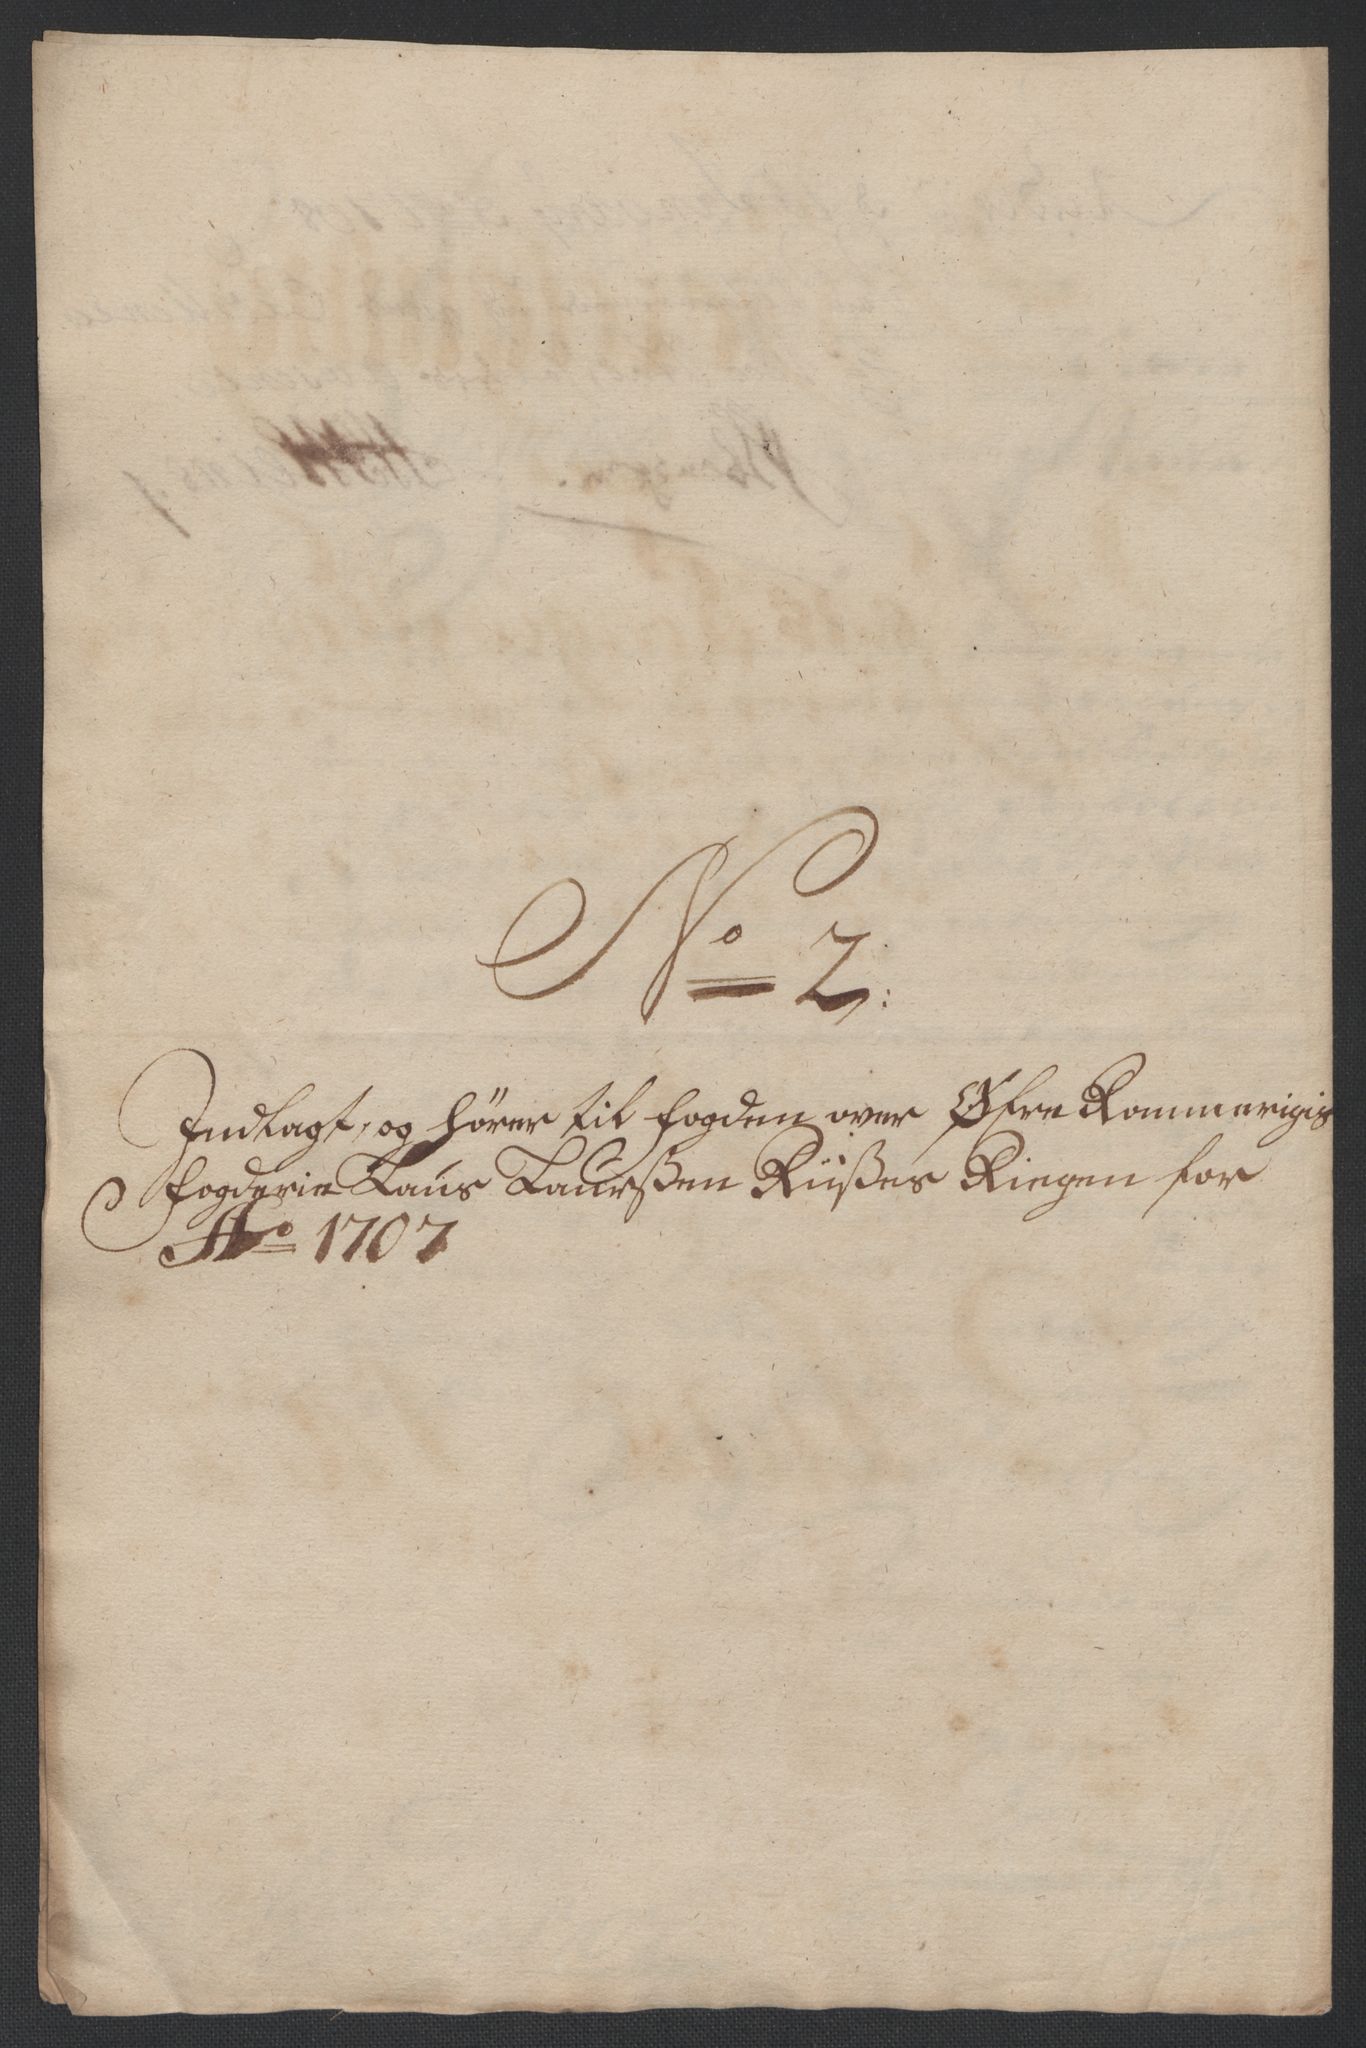 No 2:
Indlagt, og hörer til fogden over Øfre Rommerigis
fogderie Laus Laurßen Riißes Riegen for
Ao 1707